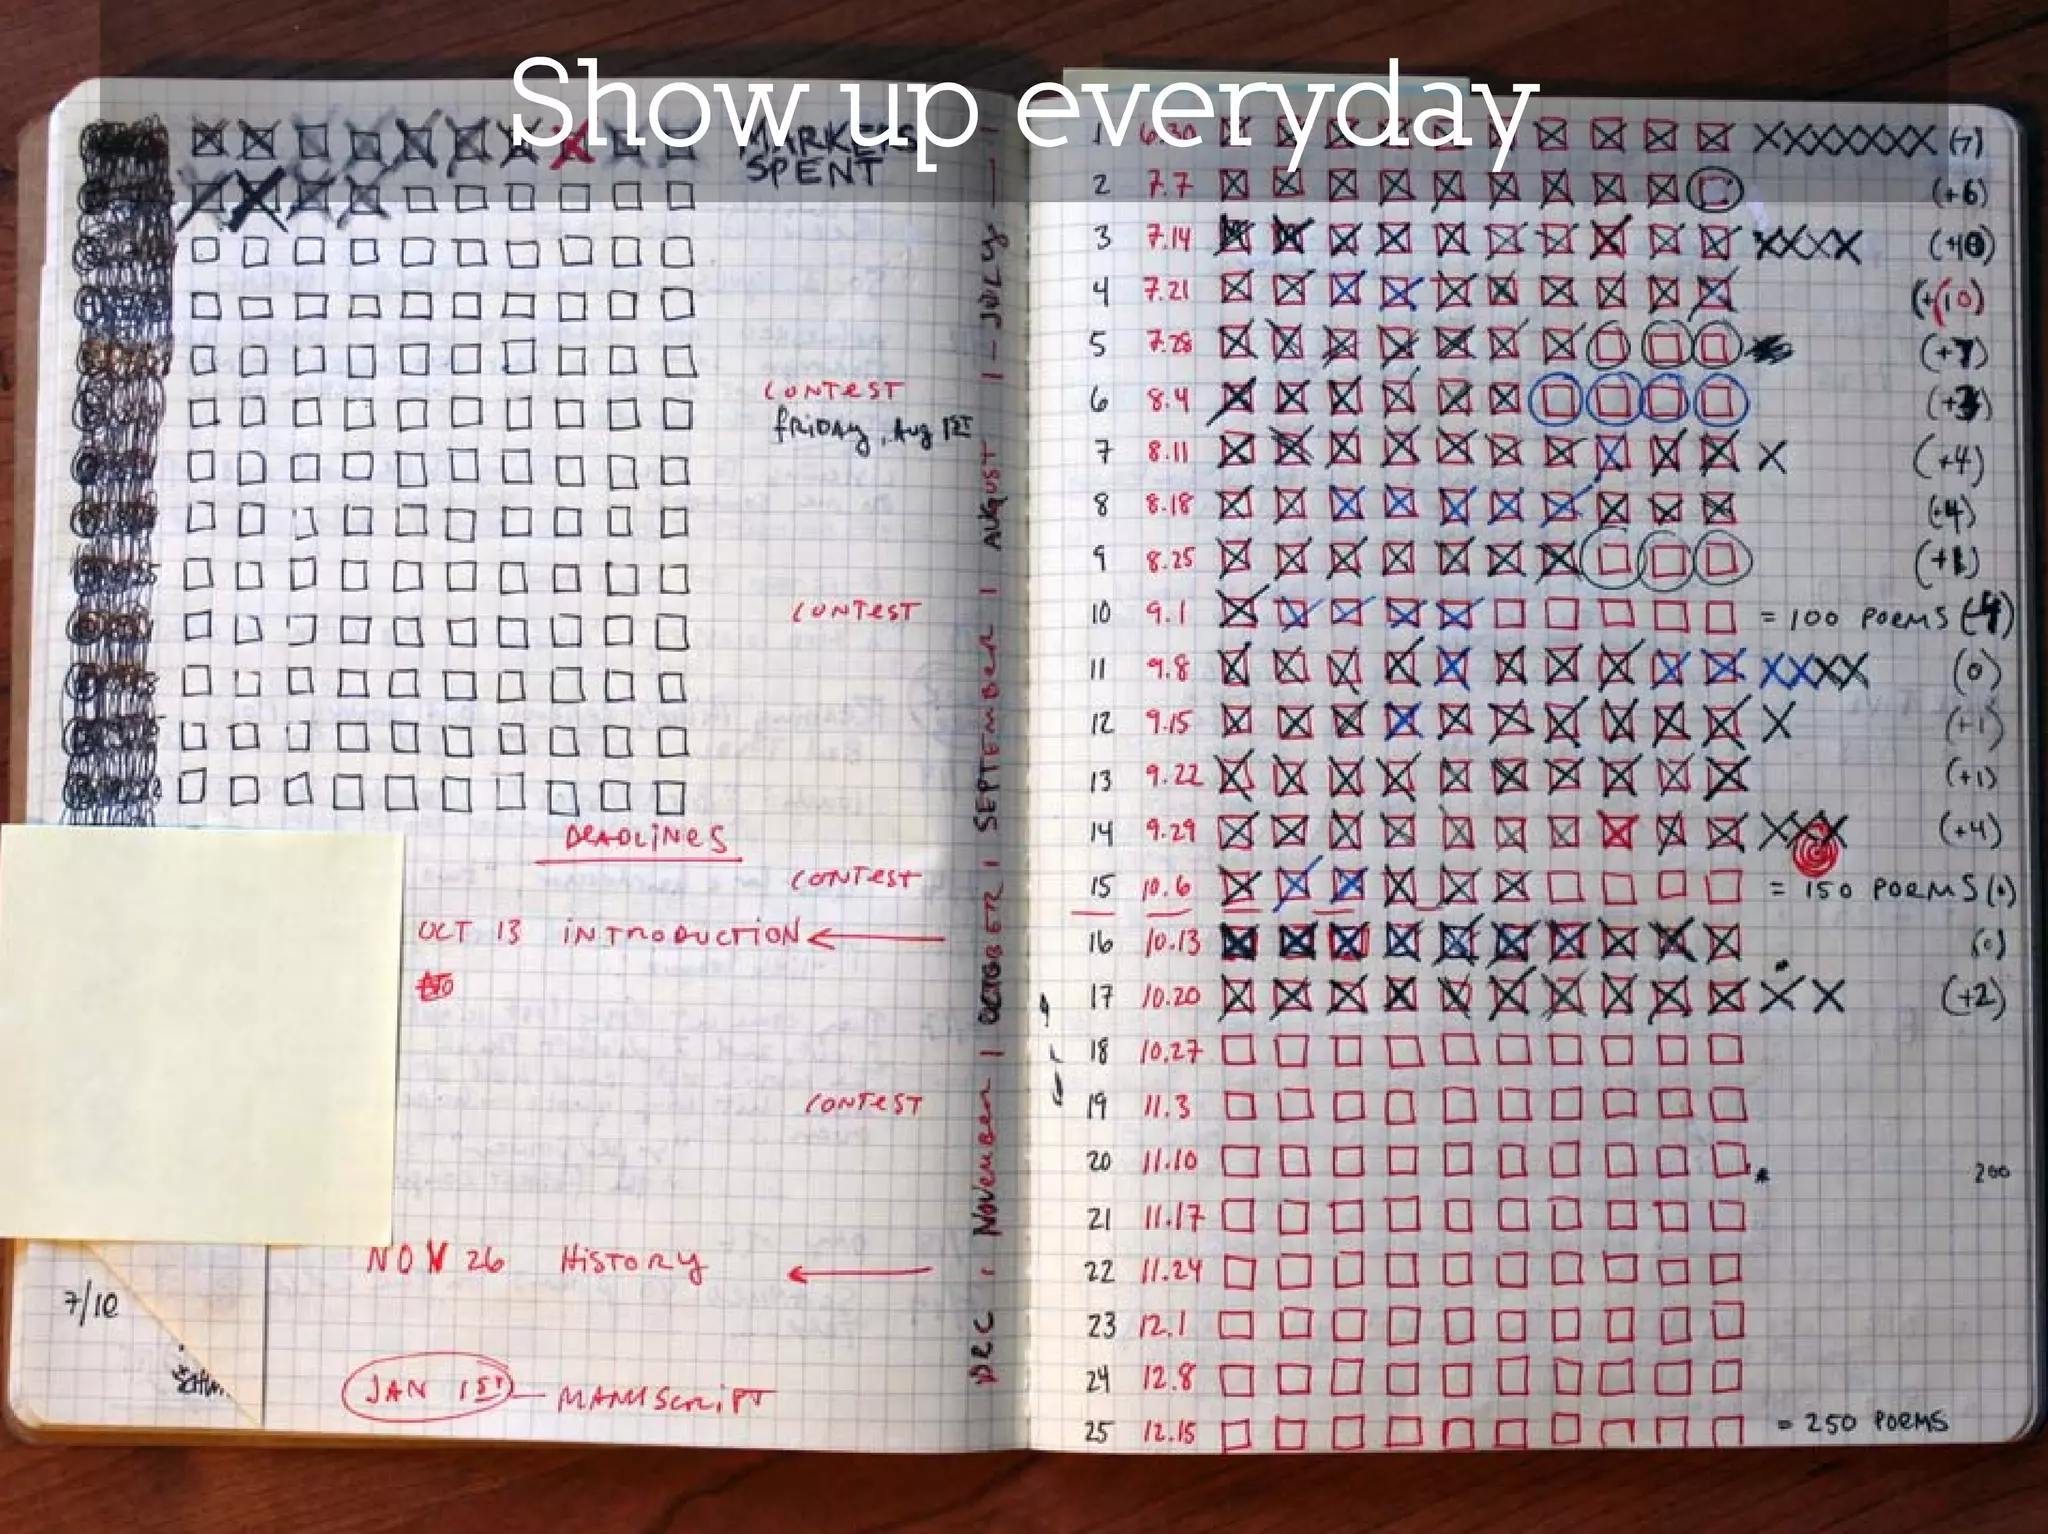 Show up everyday
MARKERS
SPENT
CONTEST
FRIDAY, Aug 1ST
CONTEST
DEADLINES
CONTEST
OCT 13 INTRODUCTION
CONTEST
NOV 26 HISTORY
7/10
JAN 1ST — MANUSCRIPT
JULY
AUGUST
SEPTEMBER
OCTOBER
November
DEC
1 6.30 (7)
2 7.7 (+6)
3 7.14 (+10)
4 7.21 (+10)
5 7.28 (+7)
6 8.4 (+3)
7 8.11 (+4)
8 8.18 (+4)
9 8.25 (+1)
10 9.1 = 100 POEMS (-4)
11 9.8 (0)
12 9.15 (+1)
13 9.22 (+1)
14 9.29 (+4)
15 10.6 = 150 POEMS (0)
16 10.13 (0)
17 10.20 (+2)
18 10.27
19 11.3
20 11.10 200
21 11.17
22 11.24
23 12.1
24 12.8
25 12.15 = 250 POEMS